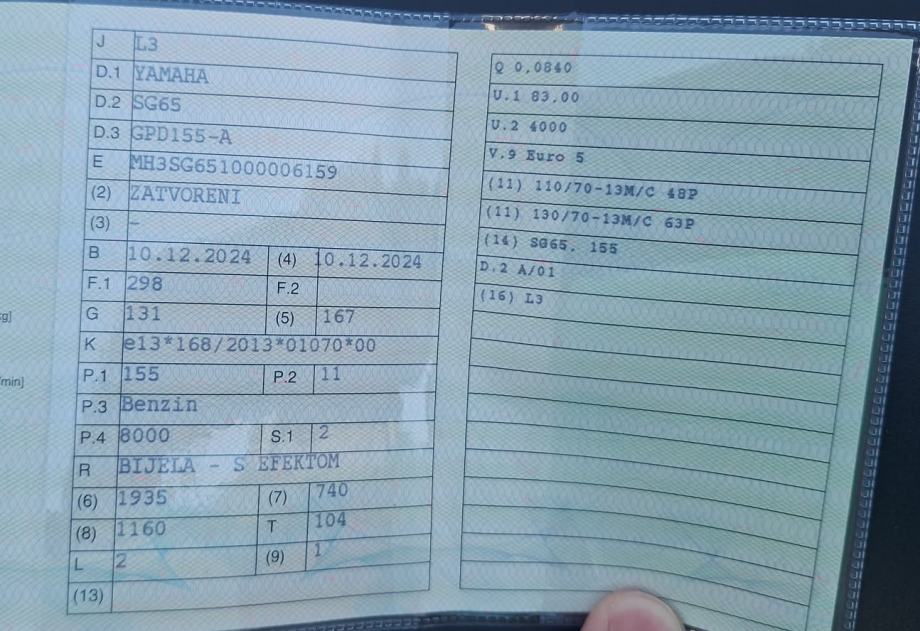 J L3
D.1 YAMAHA
D.2 SG65
D.3 GPD155-A
E MH3SG651000006159
(2) ZATVORENI
(3) -
B 10.12.2024 (4) 10.12.2024
F.1 298 F.2
G 131 (5) 167
K e13*168/2013*01070*00
P.1 155 P.2 11
P.3 Benzin
P.4 8000 S.1 2
R BIJELA - S EFEKTOM
(6) 1935 (7) 740
(8) 1160 T 104
L 2 (9) 1
(13)
g]
/min]
Q 0,0840
U.1 83,00
U.2 4000
V.9 Euro 5
(11) 110/70-13M/C 48P
(11) 130/70-13M/C 63P
(14) SG65, 155
D.2 A/01
(16) L3